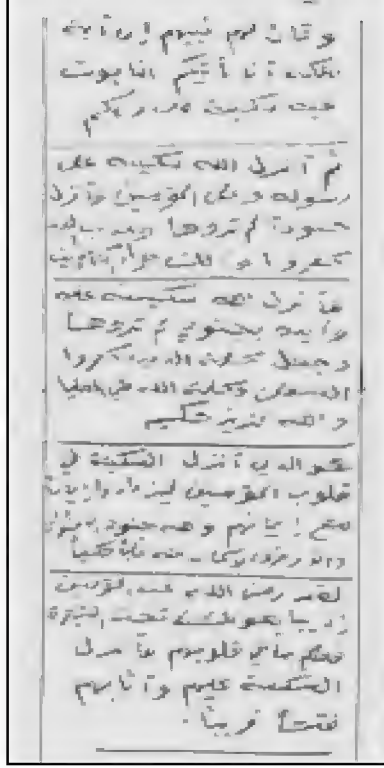 وقال لهم نبيهم إن آية
ملكه أن يأتيكم التابوت
فيه سكينة من ربكم
ثم أنزل الله سكينته على
رسوله وعلى المؤمنين وأنزل
جنودا لم تروها وعذب الذين
كفروا وذلك جزاء الكافرين
فأنزل الله سكينته عليه
وأيده بجنود لم تروها
وجعل كلمة الذين كفروا
السفلى وكلمة الله هي العليا
والله عزيز حكيم
هو الذي أنزل السكينة في
قلوب المؤمنين ليزدادوا إيمانا
مع إيمانهم ولله جنود السموات
والأرض وكان الله عليما حكيما
لقد رضي الله عن المؤمنين
إذ يبايعونك تحت الشجرة
فعلم ما في قلوبهم فأنزل
السكينة عليهم وأثابهم
فتحا قريبا.